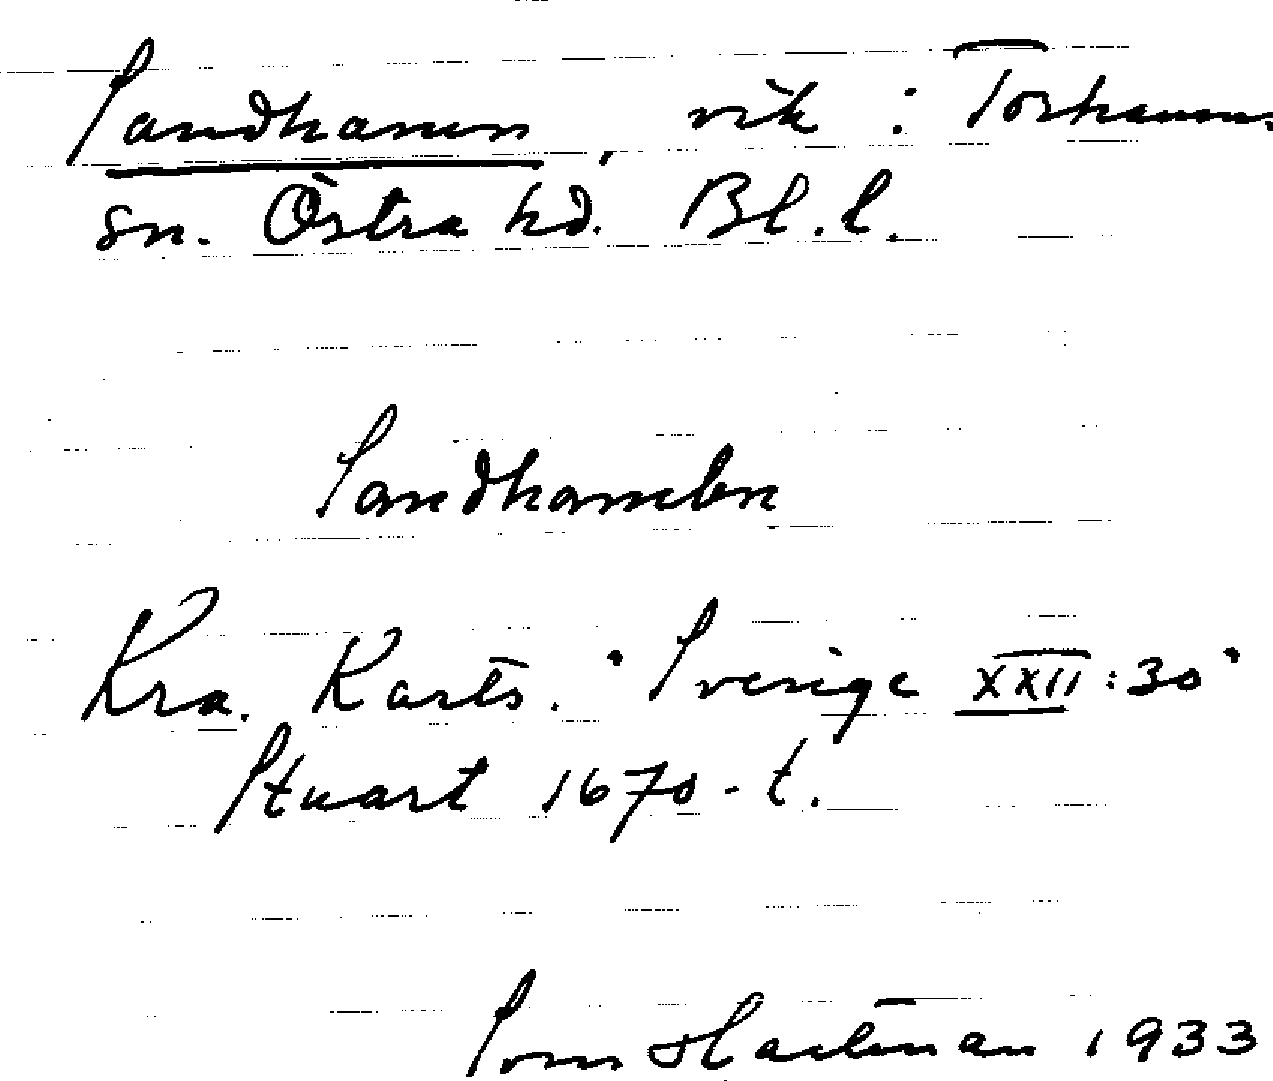 Sandhamn, vik i Torhamns
sn. Östra hd. Bl. l.
Sandhambn
Kra. Karts. "Sverige XXII:30"
Stuart 1670-t.
Hartman 1933